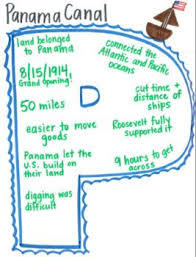 Panama Canal
land belonged
to Panama
8/15/1914,
Grand Opening!
50 miles
easier to move
goods
Panama let the
U.S. build on
their land
digging was
difficult
P
connected the
Atlantic and Pacific
oceans
cut time +
distance of
ships
Roosevelt fully
supported it
9 hours to get
across